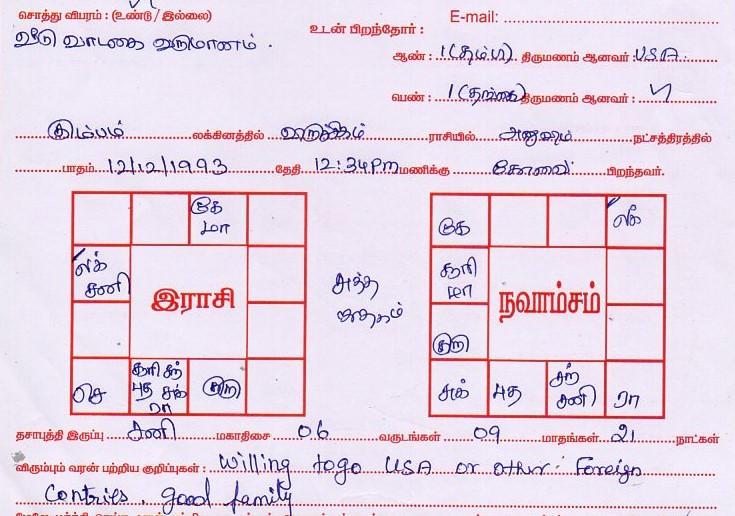 சொத்து விபரம் : (உண்டு / இல்லை)
E-mail:
வீடு வாடகை வருமானம்.
உடன் பிறந்தோர் :
ஆண் : 1 (தம்பி) திருமணம் ஆனவர் : USA
பெண் : 1 (தங்கை) திருமணம் ஆனவர் :
கும்பம் லக்கினத்தில் ராசியில் அனுஷம் நட்சத்திரத்தில்
பாதம் 12/12/1993 தேதி 12:34 Pm மணிக்கு கோவை பிறந்தவர்.
கே
மா
லக்
சனி
இராசி
செ
சூரி சந்
புத சுக்
ரா
குரு
சுத்த
ஜாதகம்
லக்
கே
சூரி
மா
நவாம்சம்
குரு
சுக்
புத
சந்
சனி
ரா
தசாபுத்தி இருப்பு சனி மகாதிசை 06 வருடங்கள் 09 மாதங்கள் 21 நாட்கள்
விரும்பும் வரன் பற்றிய குறிப்புகள் : Willing togo USA or other Foreign
Contries. good family